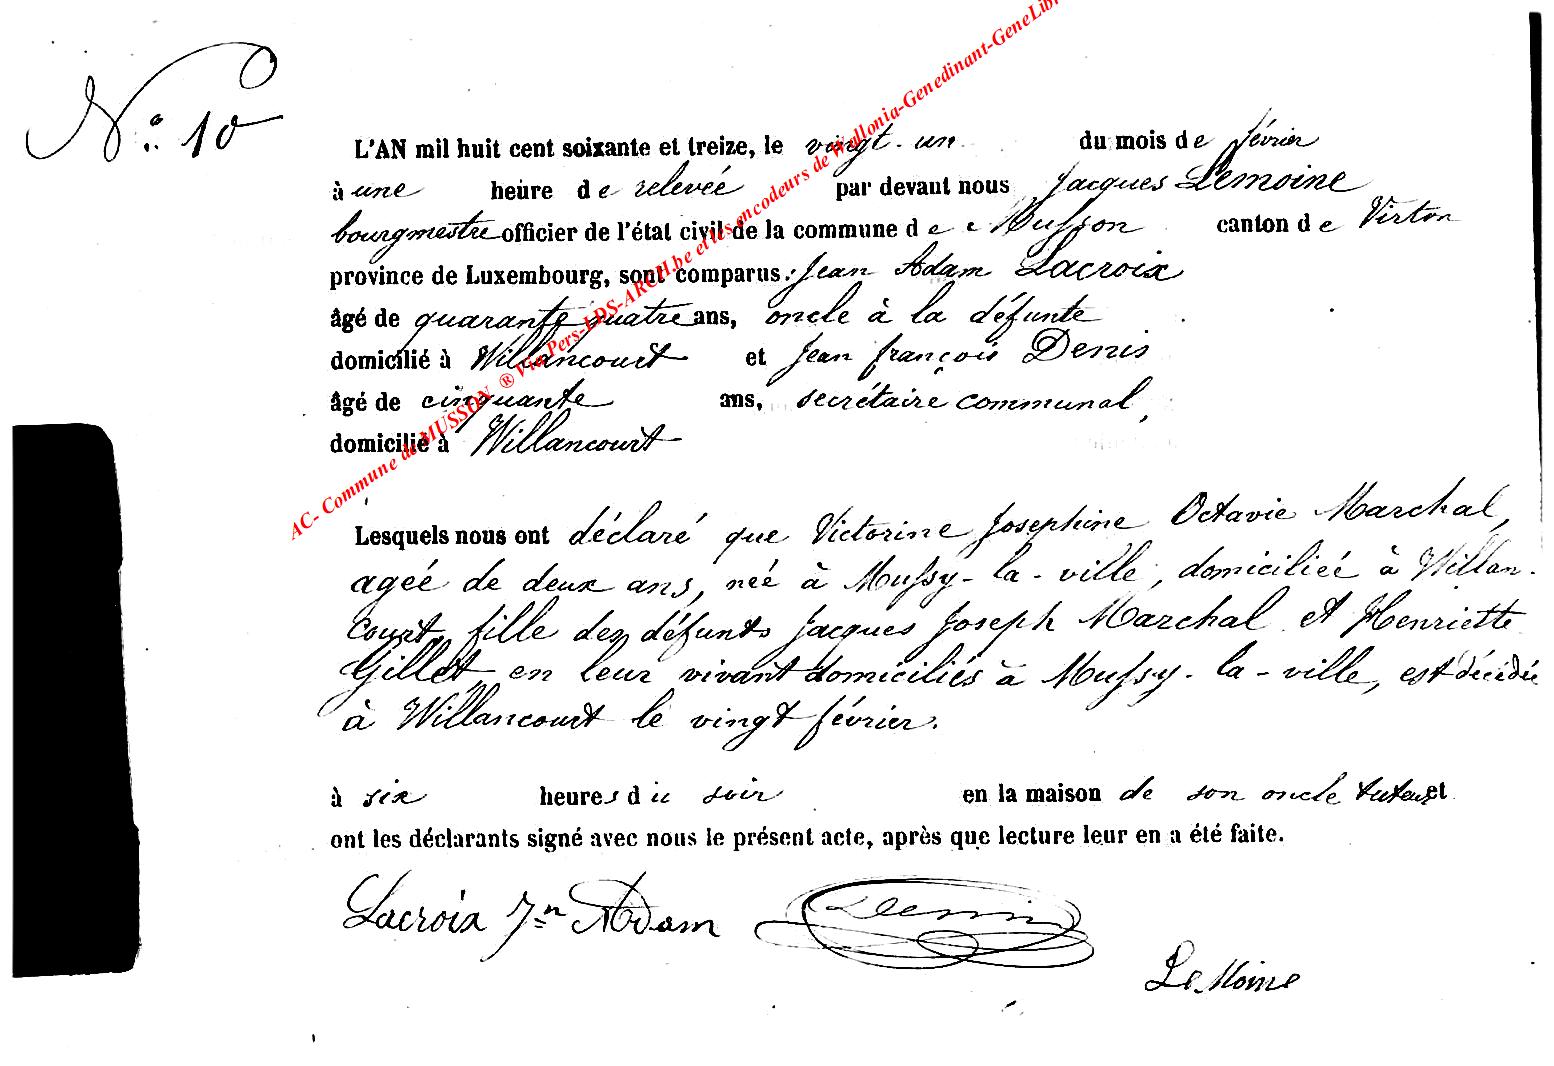 N.º 10
L'AN mil huit cent soixante et treize, le vingt-un du mois de février
à une heure de relevée par devant nous Jacques Lemoine
bourgmestre officier de l'état civil de la commune de Musson canton de Virton
province de Luxembourg, sont comparus : Jean Adam Lacroix
âgé de quarante quatre ans, oncle à la défunte
domicilié à Willancourt et Jean françois Denis
âgé de cinquante ans, secrétaire communal,
domicilié à Willancourt
AC- Commune de MUSSON ® Via Pers-LDS-ARCH.be et les encodeurs de Wallonia-Genedinant-GeneLib
Lesquels nous ont déclaré que Victorine Josephine Octavie Marchal,
ageé de deux ans, neé à Mussy-la-ville, domicilieé à Willan-
court, fille des défunts Jacques Joseph Marchal et Henriette
Gillet en leur vivant domiciliés à Mussy-la-ville, est décédée
à Willancourt le vingt février.
à six heures du soir en la maison de son oncle tuteur et
ont les déclarants signé avec nous le présent acte, après que lecture leur en a été faite.
Lacroix Jn Adam Denis
LeMoine